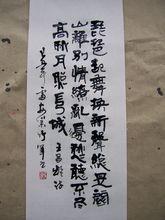 琵琶起舞換新聲總是關
山離別情撩亂邊愁聽不尽
高高秋月照長城 王昌齡詩